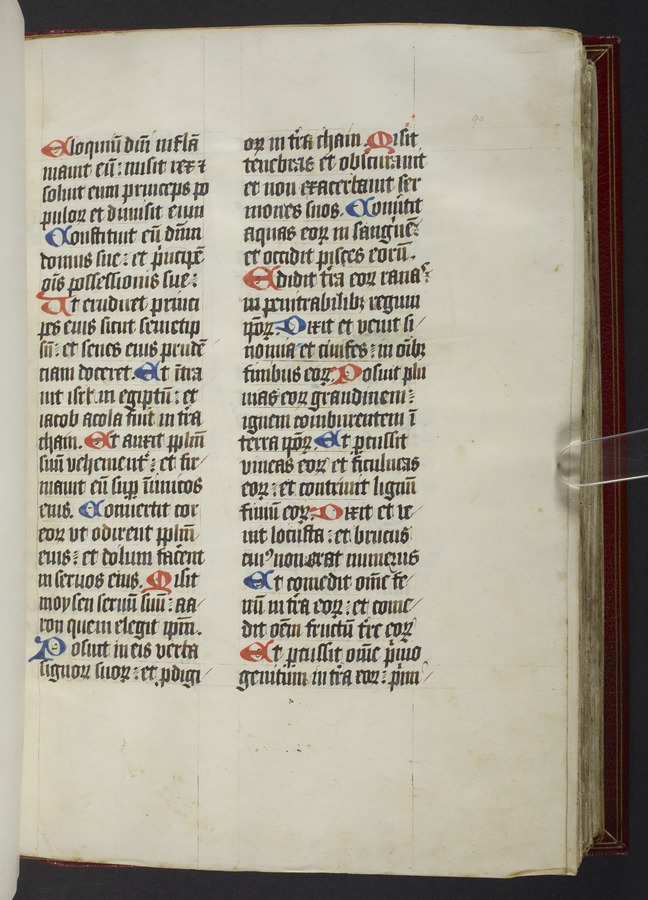 Eloquiū dn̄i īnflā
mauit eū : misit rex ⁊
soluit eum princeps po
puloꝝ et dimisit eum
Constituit eū dn̄m
domus sue : et p̄ncipē
oīs possessionis sue :
Ut erudiret princi
pes eius sicut semetip
sū : et senes eius prudē
ciam doceret. Et ītra
uit isrl̄ in egiptū : et
iacob acola fuit in tr̄a
cham. Et auxit ppl̄m
suū vehementʼ : et fir
mauit eū suꝑ inimicos
eius. Conuertit cor
eoꝝ vt odirent ppl̄m
eius : et dolum facerent
in seruos eius. Misit
moysen seruū suū : aa/
ron quem elegit ip̄m.
Posuit in eis verba
signoꝝ suoꝝ : et ꝓdigi/
oꝝ in tr̄a cham. Misit
tenebras et obscurauit
et non exacerbauit ser
mones suos. Conu̓tit
aquas eoꝝ in sanguēʒ
et occidit pisces eorū.
Edidit tr̄a eoꝝ ranas :
in penitrabilibꝫ regum
ip̄oꝝ. Dixit et venit ci/
nomia et cinifes : in oībꝫ
finibus eoꝝ. Posuit plu
uias eoꝝ grandinem :
ignem comburentem ī
terra ip̄oꝝ. Et ꝑcussit
vineas eoꝝ et ficulneas
eoꝝ : et contriuit lignū
finiū eoꝝ. Dixit et ve/
nit locusta : et brucus
cuiꝰ non erat numerus
Et comedit om̄e fe/
nū in tr̄a eoꝝ : et come/
dit oēm fructū tr̄e eoꝝ
Et ꝑcussit om̄e p̓mo
genitum in tr̄a eoꝝ : p̓mi/
90